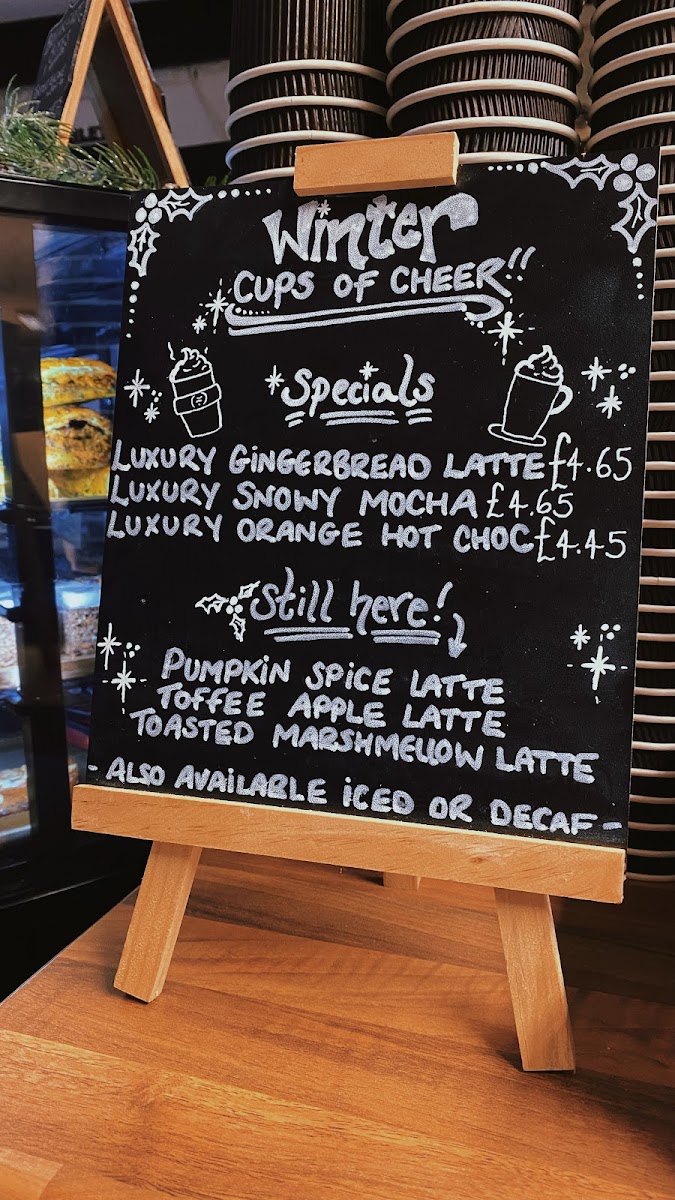 Winter
CUPS OF CHEER!!
Specials
LUXURY GINGERBREAD LATTE £4.65
LUXURY SNOWY MOCHA £4.65
LUXURY ORANGE HOT CHOC £4.45
Still here!
PUMPKIN SPICE LATTE
TOFFEE APPLE LATTE
TOASTED MARSHMELLOW LATTE
- ALSO AVAILABLE ICED OR DECAF -